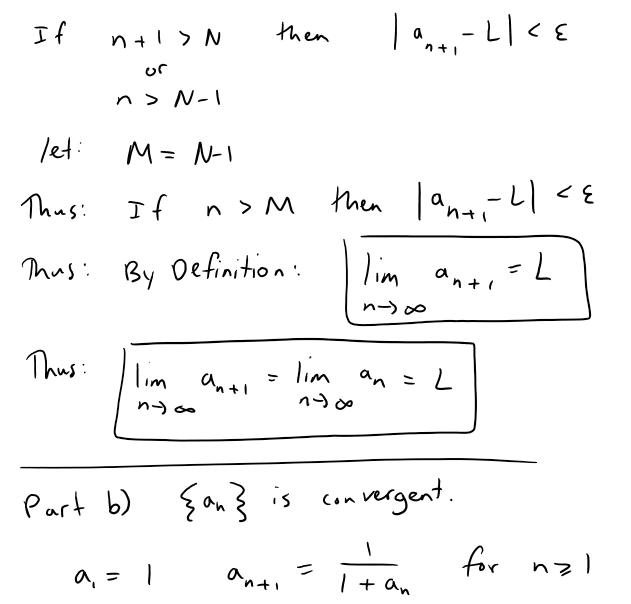 If n+1 > N then |aₙ₊₁ - L| < ε
or
n > N-1
let: M = N-1
Thus: If n > M then |aₙ₊₁ - L| < ε
Thus: By Definition: lim n→∞ aₙ₊₁ = L
Thus: lim n→∞ aₙ₊₁ = lim n→∞ aₙ = L
Part b) {aₙ} is convergent.
a₁ = 1 aₙ₊₁ = 1/(1 + aₙ) for n ≥ 1